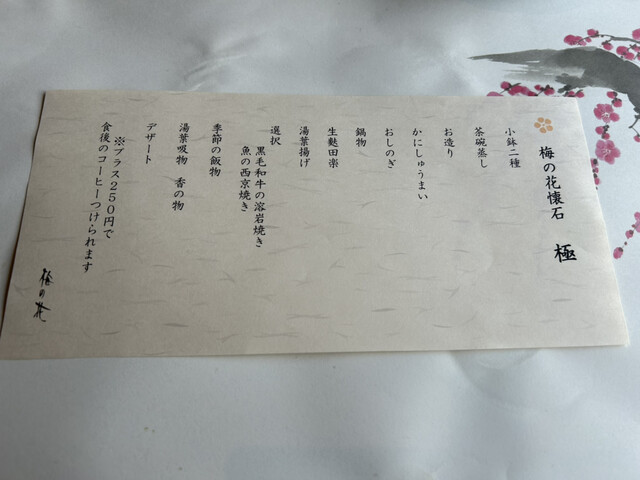 梅の花懐石　極
小鉢二種
茶碗蒸し
お造り
かにしゅうまい
おしのぎ
鍋物
生麩田楽
湯葉揚げ
選択
黒毛和牛の溶岩焼き
魚の西京焼き
季節の飯物
湯葉吸物　香の物
デザート
※プラス250円で
食後のコーヒーつけられます
梅の花